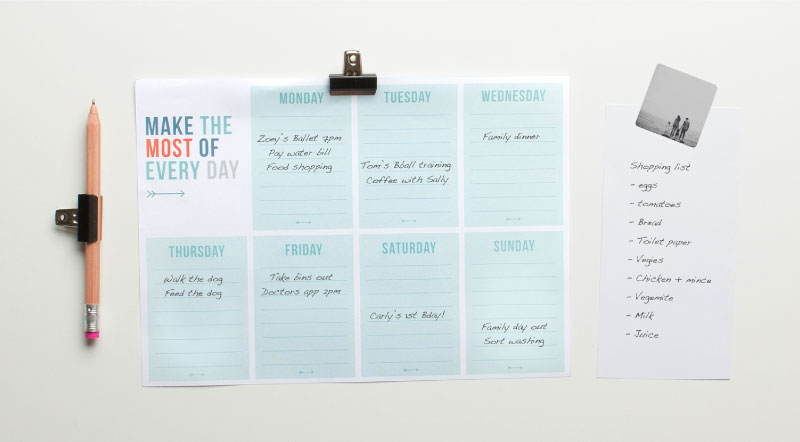 MAKE THE
MOST OF
EVERY DAY
MONDAY
Zoey's Ballet 7pm
Pay water bill
Food shopping
TUESDAY
Tom's Bball training
Coffee with Sally
WEDNESDAY
Family dinner
THURSDAY
Walk the dog
Feed the dog
FRIDAY
Take bins out
Doctors app 2pm
SATURDAY
Carly's 1st Bday!
SUNDAY
Family day out
Sort washing
Shopping list
- eggs
- tomatoes
- Bread
- Toilet paper
- Vegies
- Chicken + mince
- Vegemite
- Milk
- Juice